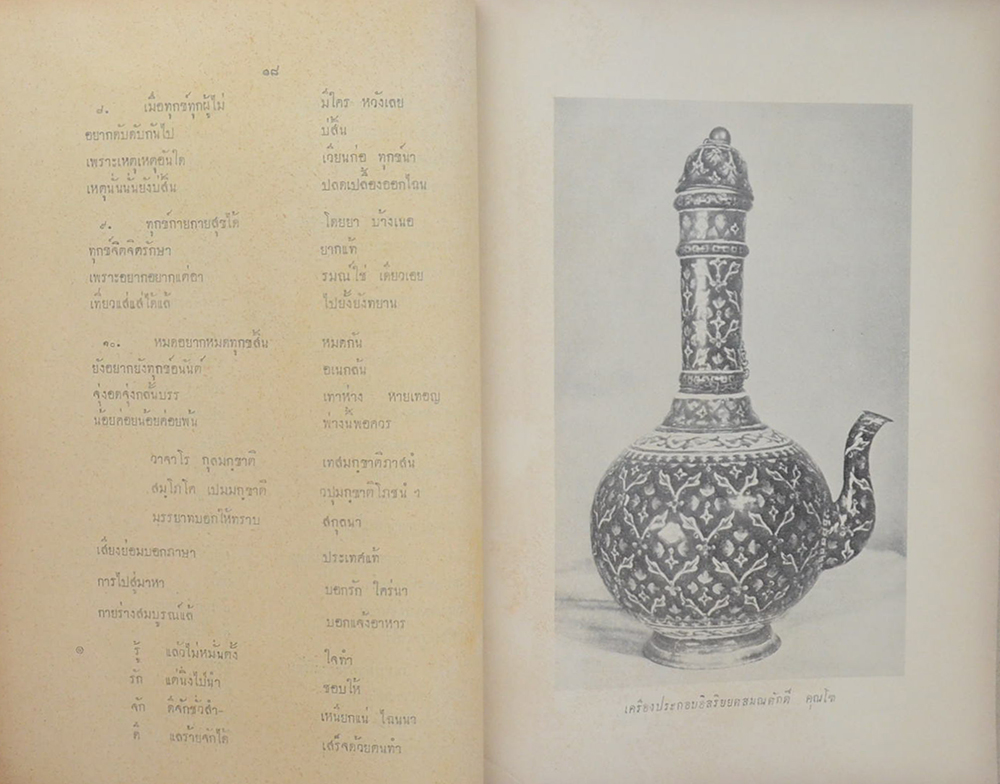 ๑๘
๘. เมื่อทุกข์ทุกผู้ไม่ มีใคร หวังเลย
อยากดับดับกันไป บ่สิ้น
เพราะเหตุเหตุอันใด เวียนก่อ ทุกข์นา
เหตุนั้นนั้นยังบ่สิ้น ปลดเปลื้องออกไฉน
๙. ทุกข์กายกายสุขได้ โดยยา บ้างเนอ
ทุกข์จิตจิตรักษา ยากแท้
เพราะอยากอยากแต่อา รมณ์ใช่ เดียวเอย
เที่ยวแส่แส่ได้แล้ ไปยั้งยังทยาน
๑๐. หมดอยากหมดทุกข์สิ้น หมดกัน
ยังอยากยังทุกข์อนันต์ อเนกลัน
จุ่งอดจุ่งกลั้นบรร เทาห่าง หายเทอญ
น้อยค่อยน้อยค่อยพ้น พ่างนี้พอควร
วาจาโร กุลมกฺขาติ เทสมกฺขาติภาสนํ
สมฺโภโค เปมมกฺขาติ วปุมกฺขาติโภชนํ ฯ
มรรยาทบอกให้ทราบ สกุลนา
เสียงย่อมบอกภาษา ประเทศแท้
การไปสู่มาหา บอกรัก ใคร่นา
กายร่างสมบูรณ์แล้ บอกแจ้งอาหาร
๑ รู้ แล้วไม่หมั่นตั้ง ใจทำ
รัก แต่นิ่งไป่นำ ชอบให้
จัก ดีจักชั่วสำ- เหนียกแน่ ไฉนนา
ดี แลร้ายจักได้ เสร็จด้วยตนทำ
เครื่องประกอบอิสริยยศสมณศักดิ์ คุณโฑ